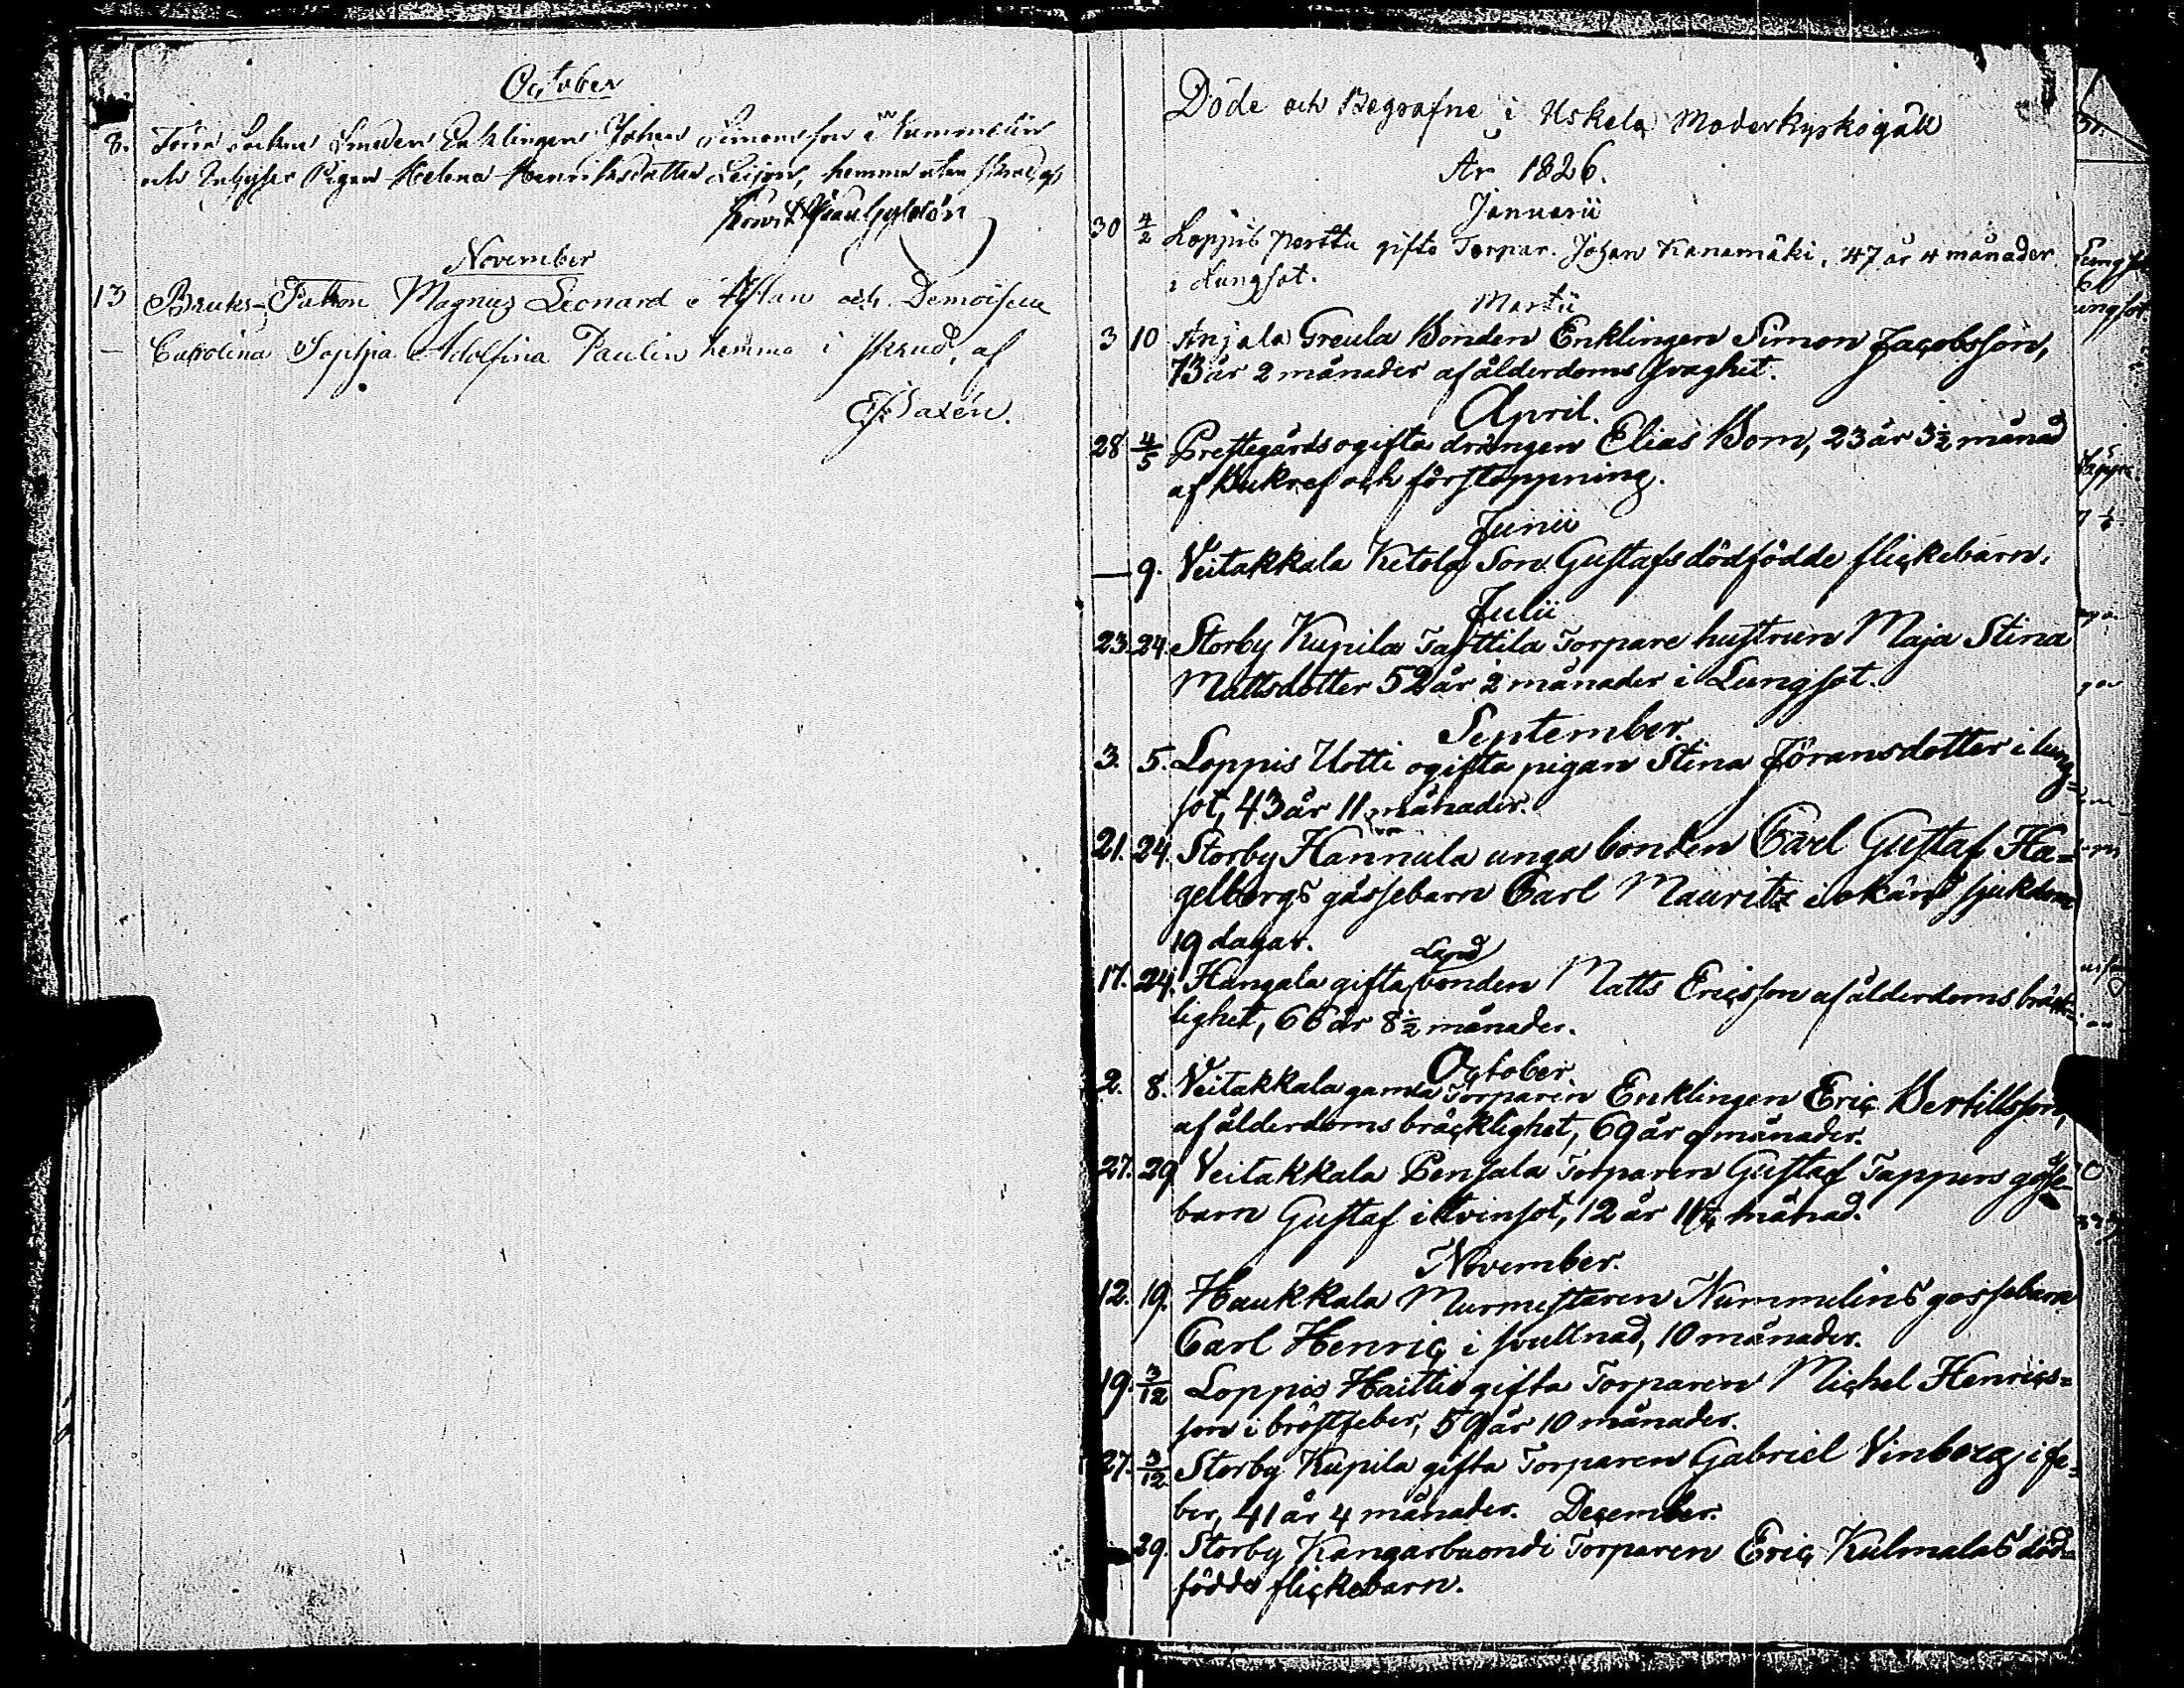 October
8. Förre Sockne Smeden Enklingen Johan Simonsson i
och Inhyses Pigan Helena Henriksdotter Leijon, hemma utan skrud, af
November
13 Bruks-Patron Magnus Leonard Åstan och Demoiselle
Carolina Sophia Adolfina Paulin hemma i skrud, af
Paxén.
Döde och Begrafne i Uskela Moderkyrkogäll
År 1826.
Januarii
30 4/2 Loppis Perttu gifte Torpar. Johan Kanamäki, 47 år 4 månader
i Lungsot.
Martii
3 10 Anjala Greula Bonden Enklingen Simon Jacobsson,
73 år 2 månader af ålderdoms svaghet.
April.
28 4/5 Prestegårds ogifta drängen Elias Bom, 23 år 3½ månad
af Bukref och förstoppning.
Junii
— 9. Veitakkala Ketola Son Gustafs dödfödde flickebarn.
Julii
23. 24. Storby Kupila Tarttila Torpare hustrun Maja Stina
Mattsdotter 52 år 2 månader i Lungsot.
September.
3. 5. Loppis Uotti ogifta pigan Stina Jöransdotter i lung=
sot, 43 år 11 månader.
21. 24. Storby Hannula unga bonden Carl Gustaf Ha=
gelbergs gåssebarn Carl Mauritz i okänd sjukdom
19 dagar.
17. 24. Hangala gifta Land bonden Matts Ericsson af ålderdoms bräck=
lighet, 66 år 8½ månader.
October.
2. 8. Veitakkala gamla Torparen Enklingen Eric Bertillsson,
af ålderdoms bräcklighet, 69 år 9 månader.
27. 29 Veitakkala Pensala Torparen Gustaf Tappers gåsse
barn Gustaf i tvinsot, 12 år 11¼ månad.
November.
12. 19. Haukkala Murmestaren Nummelins gossebarn
Carl Henric i svullnad, 10 månader.
19. 3/12 Loppis Haitti gifta Torparen Michel Henrics=
son i bröstfeber, 59 år 10 månader.
27. 3/12 Storby Kupila gifta Torparen Gabriel Vinberg i fe=
ber, 41 år 4 månader. December.
29. Storby Kangarbuondi Torparen Eric Kulmalas död=
födda flickebarn.